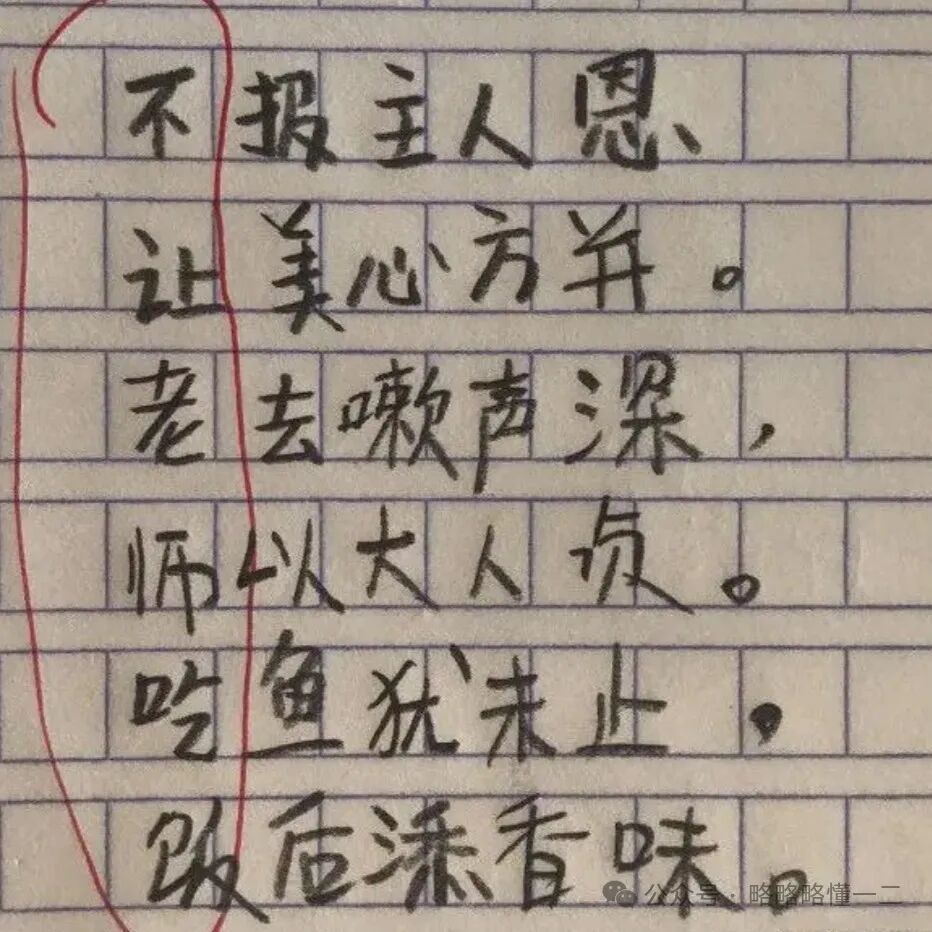 不报主人恩、
让美心方并。
老去嗽声深，
师以大人贞。
吃鱼犹未止，
饭后添香味。
公众号·略略略懂一二